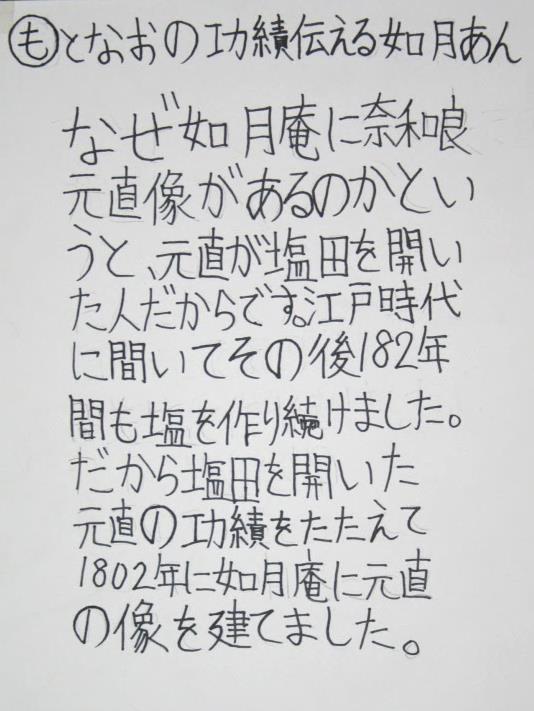 もとなおの功績伝える如月あん
なぜ如月庵に奈和良
元直像があるのかとい
うと、元直が塩田を開い
た人だからです。江戸時代
に開いてその後182年
間も塩を作り続けました。
だから塩田を開いた
元直の功績をたたえて
1802年に如月庵に元直
の像を建てました。